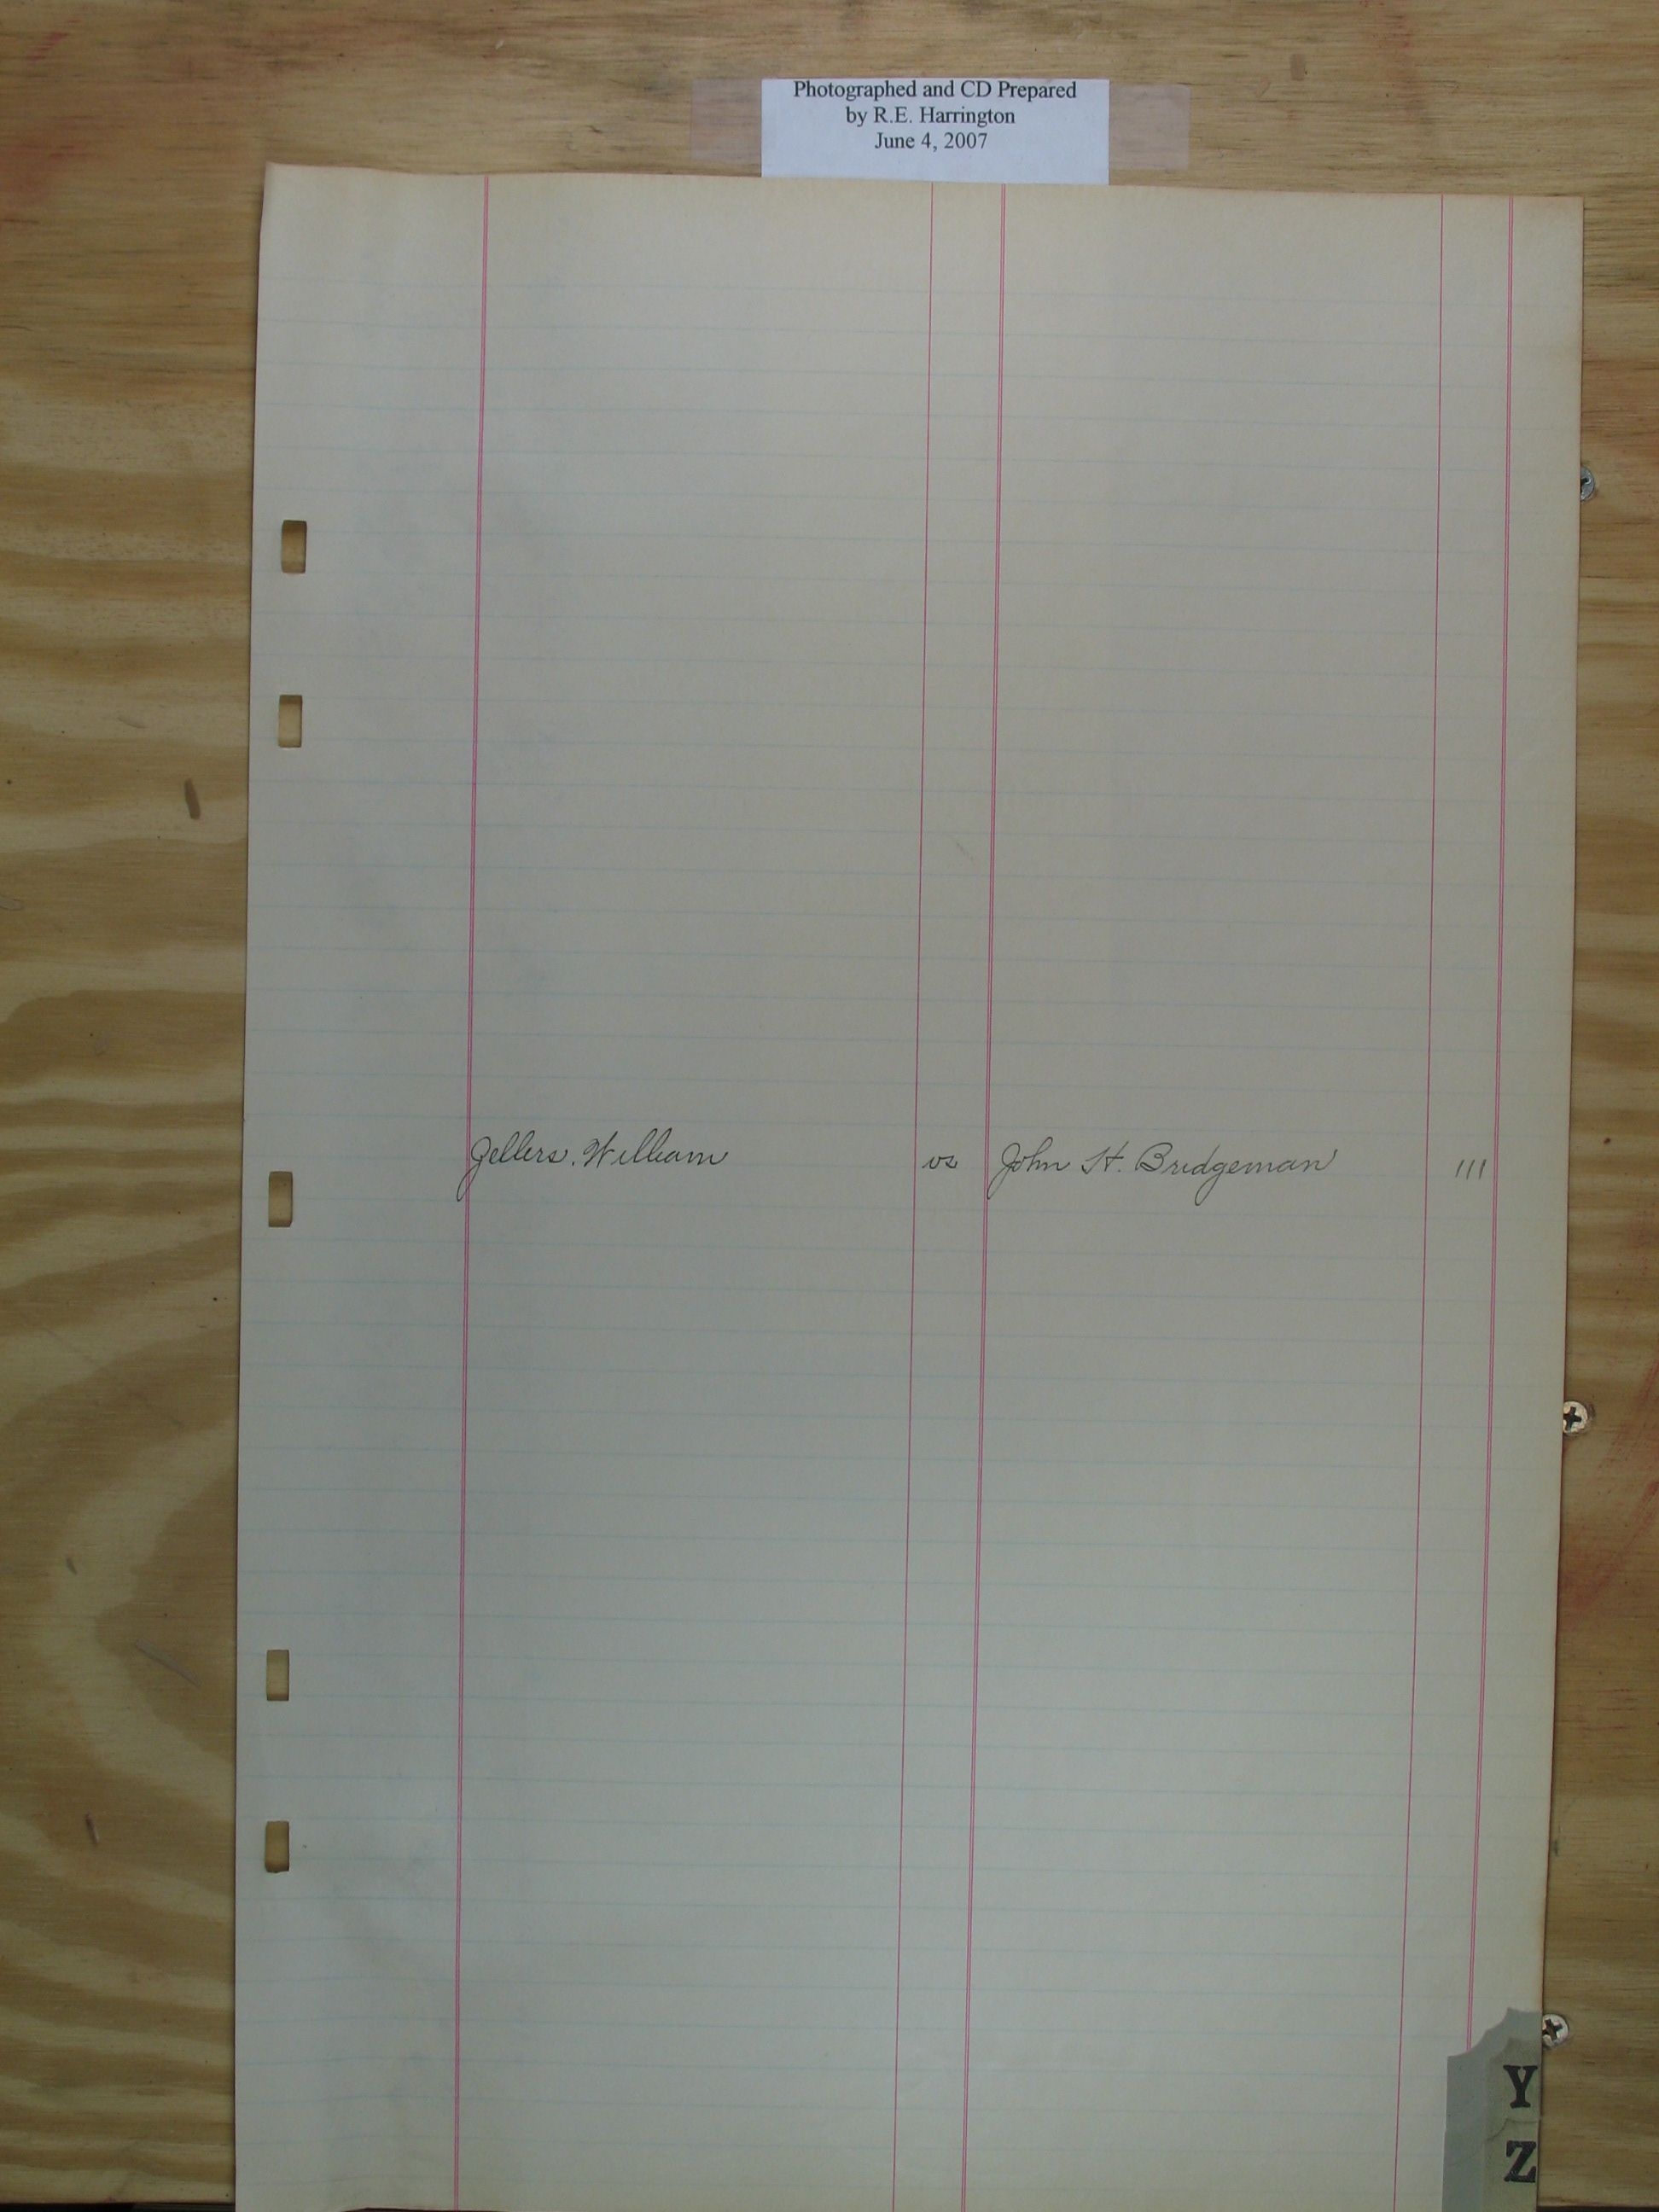 Photographed and CD Prepared
by R.E. Harrington
June 4, 2007
Zellers, William vs John H. Bridgeman 111
Y
Z